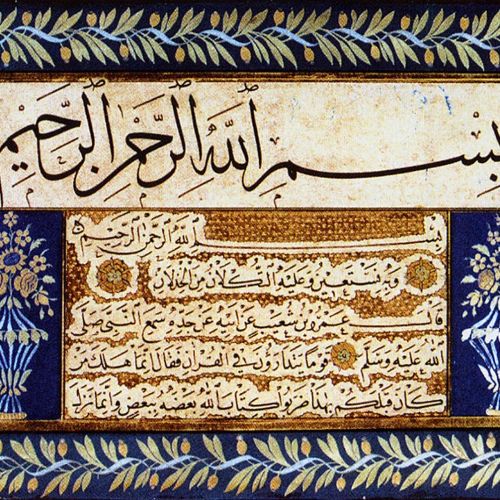 بسم الله الرحمن الرحيم
بسم الله الرحمن الرحيم
وبه نستعين وعليه التكلان من الخذلان
قال عمرو بن شعيب عن ابيه عن جده سمع النبي صلى
الله عليه وسلم قوما يتدارون في القرآن فقال انما هلك من
كان قبلكم بهذا ضربوا كتاب الله بعضه ببعض وانما نزل